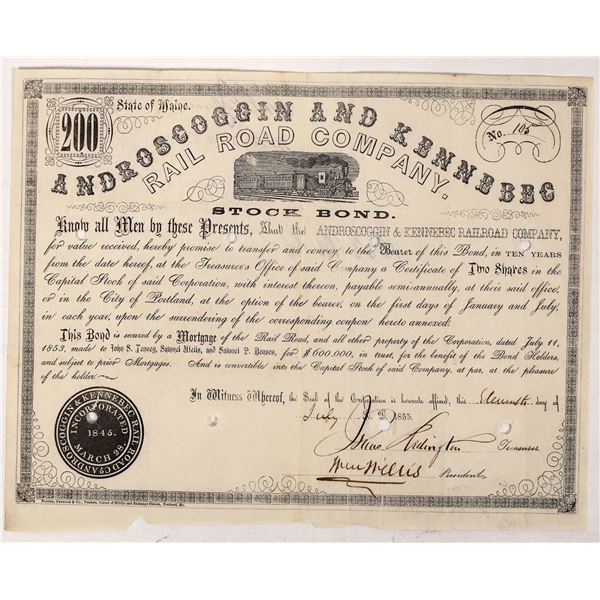 State of Maine.
200
No. 105
ANDROSCOGGIN AND KENNEBEC
RAIL ROAD COMPANY.
STOCK BOND.
Know all Men by these Presents, that the ANDROSCOGGIN & KENNEBEC RAILROAD COMPANY,
for value received, hereby promise to transfer and convey to the Bearer of this Bond, in TEN YEARS
from the date hereof, at the Treasurer's Office of said Company a Certificate of Two Shares in the
Capital Stock of said Corporation, with interest thereon, payable semi-annually, at their said office,
or in the City of Portland, at the option of the bearer, on the first days of January and July,
in each year, upon the surrendering of the corresponding coupon hereto annexed.
This Bond is secured by a Mortgage of the Rail Road, and all other property of the Corporation, dated July 11,
1853, made to John S. Tenney, Samuel Wells, and Samuel P. Benson, for $600,000, in trust, for the benefit of the Bond Holders,
and subject to prior Mortgages. And is convertible into the Capital Stock of said Company, at par, at the pleasure
of the holder.
In Witness Whereof, the Seal of the Corporation is hereunto affixed, this Eleventh day of
July A. D. 1855.
ANDROSCOGGIN & KENNEBEC RAIL ROAD CO.
INCORPORATED
1845.
MARCH 28
Treasurer.
Wm Willis President.
Printers, Corner of Middle and Exchange Streets, Portland, Me.